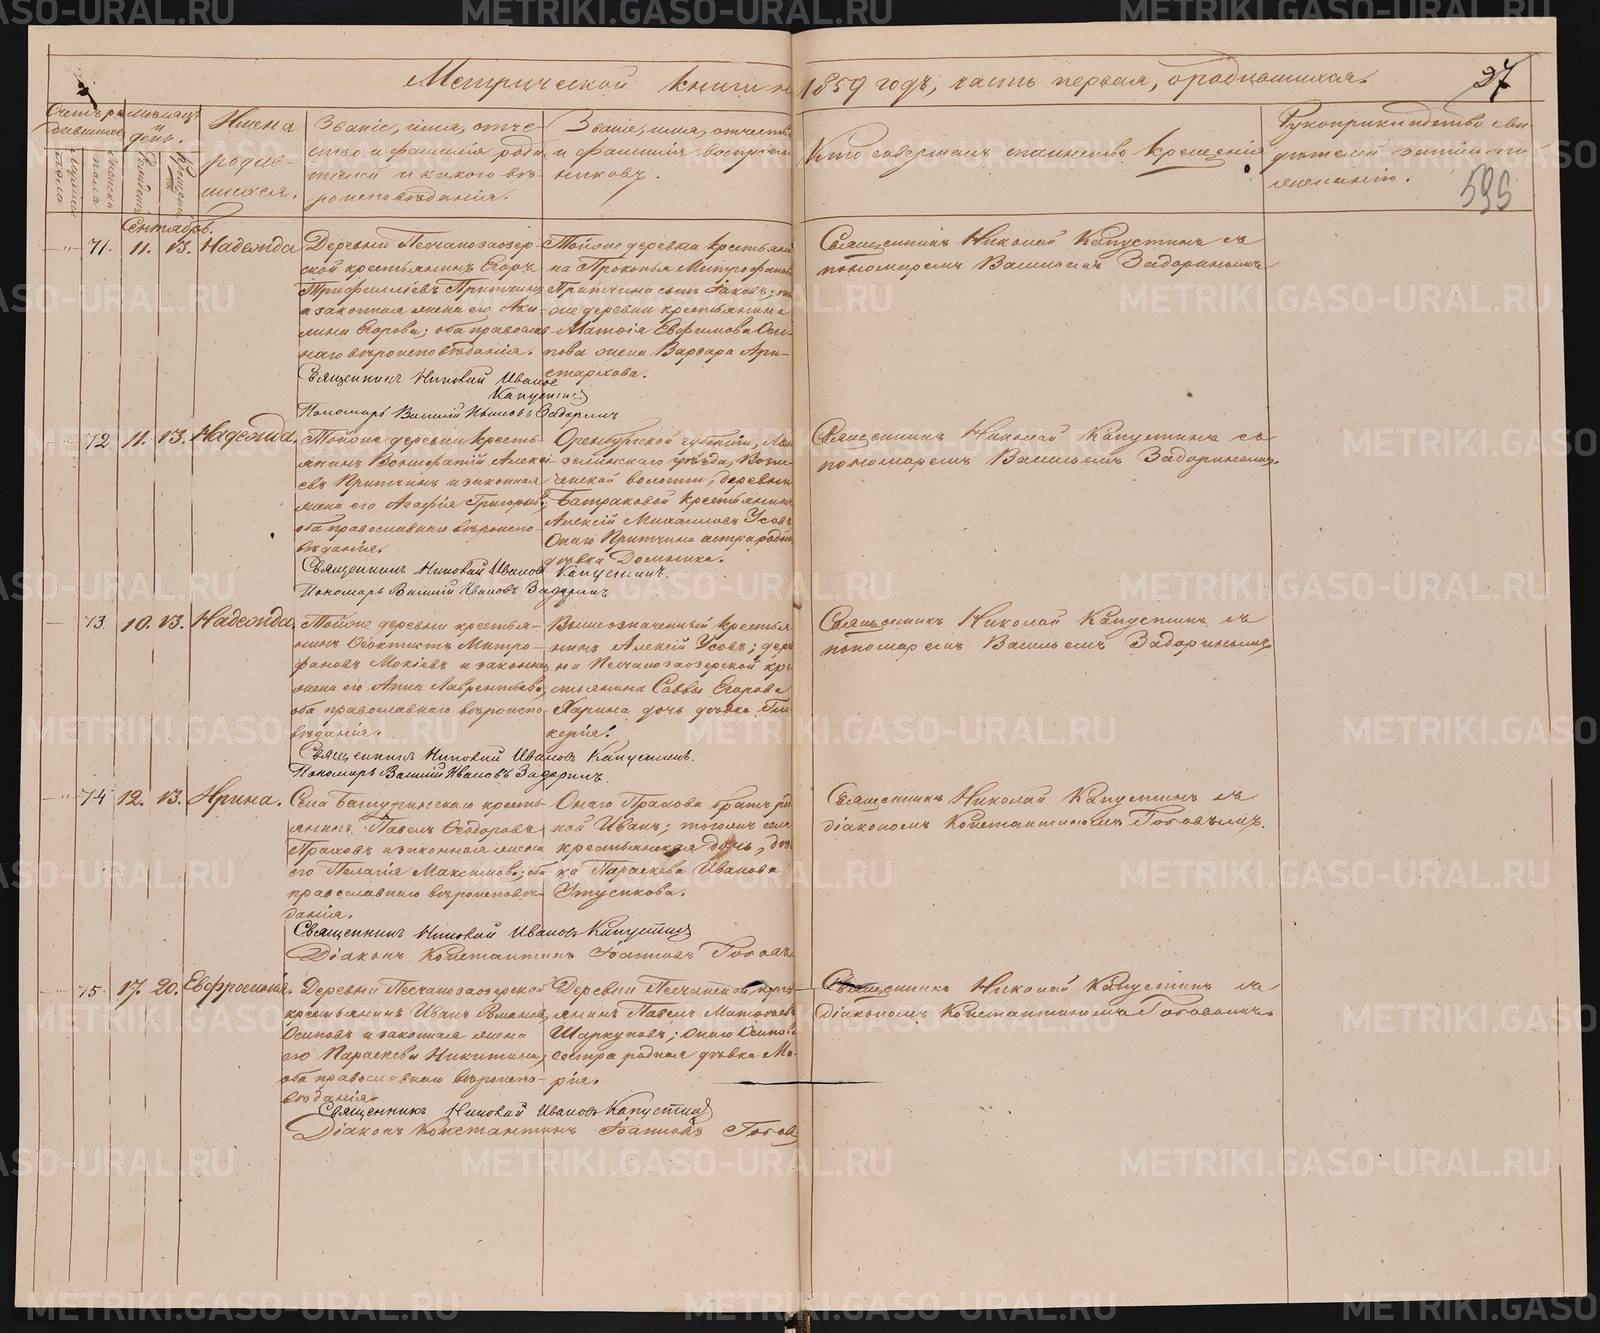 Метрической книги на 1859 годъ, часть первая, о родившихся.
27
595
Счетъ родившихся
Мужеска пола
Женска пола
Мѣсяцъ и день.
Рожденія
Крещенія
Имена родившихся.
Званіе, имя, отчество и фамилія родителей и какого вѣроисповѣданія.
Званіе, имя, отчество и фамилія воспріемниковъ.
Кто совершалъ таинство крещенія
Рукоприкладство свидѣтелей записи по желанію.
Сентябрь.
71. 11. 13. Надежда
Деревни Песчаноозерской крестьянинъ Егоръ
Трифилліевъ Притчинъ
и законная жена его Акилина Егорова; оба православнаго вѣроисповѣданія.
Тойже деревни крестьянина Прокопья Митрофанова
Притчина сынъ Іаковъ; тойже деревни крестьянина
Матѳія Евфимова Осипова жена Варвара Аристархова.
Священникъ Николай Капустинъ съ
пономаремъ Василіемъ Задоринымъ
Священникъ Николай Ивановъ
Капустинъ
Пономарь Василій Ивановъ Задоринъ
72. 11. 13. Надежда
Тойже деревни крестьянинъ Вонифатій Алексіевъ Притчинъ и законная
жена его Агафія Григорьева;
оба православнаго вѣроисповѣданія.
Оренбургской губерніи, уѣзда,
волости, деревни
Батраковой крестьянинъ
Алексій Михаиловъ Усовъ
Онаго Притчина сестра родная
дѣвка Домника.
Священникъ Николай Капустинъ съ
пономаремъ Василіемъ Задоринымъ.
Священникъ Николай Ивановъ Капустинъ.
Пономарь Василій Ивановъ Задоринъ
73. 10. 13. Надежда
Тойже деревни крестьянинъ Ѳеоктистъ Митрофановъ Мокіевъ и законная
жена его Анна Лаврентьева;
оба православнаго вѣроисповѣданія.
Вышеозначенный крестьянинъ Алексій Усовъ; деревни Песчаноозерской крестьянина Саввы Егорова
Ярина дочь дѣвка Гликерія.
Священникъ Николай Капустинъ съ
пономаремъ Василіемъ Задоринымъ
Священникъ Николай Ивановъ Капустинъ.
Пономарь Василій Ивановъ Задоринъ.
74. 12. 13. Ирина.
Села Батуринскаго крестьянинъ Павелъ Ѳеодоровъ
и законная жена
его Пелагія Максимова; оба
православнаго вѣроисповѣданія.
Онаго братъ родной Иванъ; тогожъ села
крестьянская дочь, дѣвка Параскева Иванова
Священникъ Николай Капустинъ съ
діакономъ Константиномъ
Священникъ Николай Ивановъ Капустинъ
Діаконъ Константинъ Іоанновъ
75. 17. 20. Евфросинія.
Деревни Песчаноозерской
крестьянинъ Иванъ
Осиповъ и законная жена
его Параскева Никитина;
оба православнаго вѣроисповѣданія.
Деревни Песчанской крестьянинъ Павелъ Матѳеевъ
Шаркуновъ; онаго Осипова
сестра родная дѣвка Марія.
Священникъ Николай Капустинъ съ
діакономъ Константиномъ
Священникъ Николай Ивановъ Капустинъ
Діаконъ Константинъ Іоанновъ
METRIKI.GASO-URAL.RU